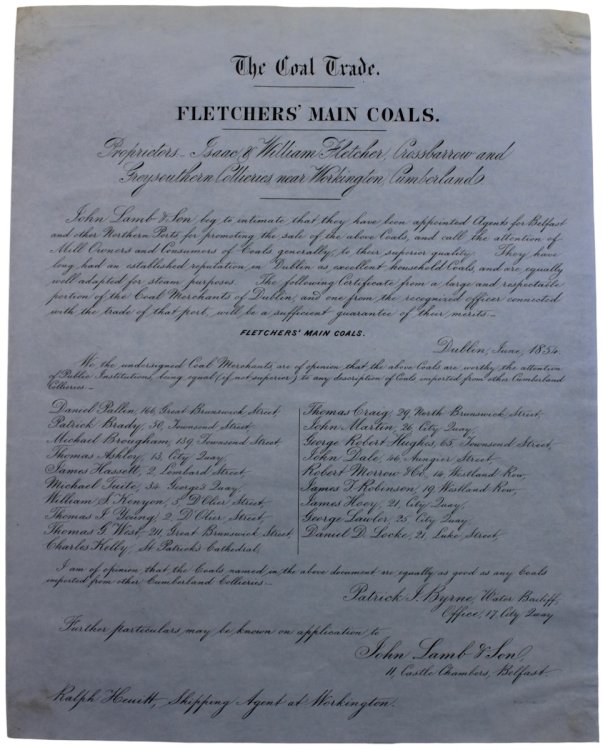 The Coal Trade.
FLETCHERS' MAIN COALS.
Proprietors_ Isaac, & William Fletcher, Crossbarrow and
Greysouthern Collieries, near Workington, Cumberland.
John Lamb & Son beg to intimate, that they have been appointed Agents for Belfast
and other Northern Ports, for promoting the sale of the above Coals, and call the attention of
Mill Owners and Consumers of Coals generally, to their superior quality. They have
long had an established reputation in Dublin as excellent household Coals, and are equally
well adapted for steam purposes. The following Certificate from a large and respectable
portion of the Coal Merchants of Dublin, and one from the recognized officer connected
with the trade of that port, will be a sufficient guarantee of their merits._
FLETCHERS' MAIN COALS.
Dublin, June, 1854.
We the undersigned Coal Merchants, are of opinion, that the above Coals are worthy the attention
of Public Institutions, being equal (if not superior) to any description of Coals imported from other Cumberland
Collieries._
Daniel Pallin, 166, Great Brunswick Street,
Patrick Brady, 50, Townsend Street,
Michael Brougham, 139, Townsend Street,
Thomas Ashley, 13, City Quay,
James Hassett, 2, Lombard Street,
Michael Tuite, 34, George's Quay,
William S. Kenyon, 5, D'Olier Street,
Thomas I. Young, 2, D'Olier Street,
Thomas G. West, 211, Great Brunswick Street,
Charles Kelly, St Patrick's Cathedral,
Thomas Craig, 29, North Brunswick Street,
John Martin, 26, City Quay,
George Robert Hughes, 65, Townsend Street,
John Dale, 46, Aungier Street,
Robert Morrow & Co, 14, Westland Row,
James T. Robinson, 19, Westland Row,
James Hoey, 21, City Quay,
George Lawler, 25, City Quay,
Daniel D. Locke, 21, Luke Street.
I am of opinion that the Coals named in the above document are equally as good as any Coals
imported from other Cumberland Collieries._
Patrick I. Byrne, Water Bailiff,
Office, 17, City Quay
Further particulars may be known on application to
John Lamb & Son,
11, Castle Chambers, Belfast.
Ralph Hewitt, Shipping Agent at Workington.